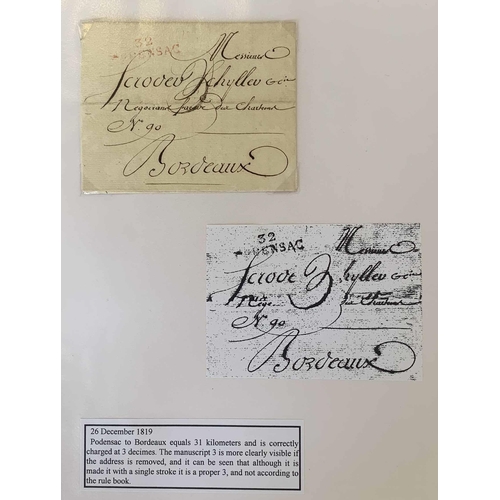 32
PODENSAC
Messieurs
Schyller
Negociants
N. 90
Bordeaux
32
PODENSAC
Messieurs
N. 90
Bordeaux
26 December 1819
Podensac to Bordeaux equals 31 kilometers and is correctly
charged at 3 decimes. The manuscript 3 is more clearly visible if
the address is removed, and it can be seen that although it is
made it with a single stroke it is a proper 3, and not according to
the rule book.